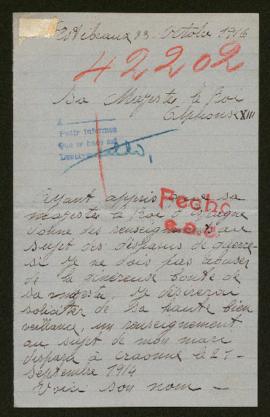 octobre 1916
42202
Sa Majesté le Roi
Alphonse XIII
A
Pedir informes
Fecho
Ayant appris que sa
majesté le Roi d'Espagne
donne des renseignements au
sujet des disparus de guerre
si je ne dois pas abuser
de la généreuse bonté de
sa majesté. Je désirerai
solliciter de sa haute bien
veillance, un renseignement
au sujet de mon mari
disparu à Craonne le 21
Septembre 1914
Voici son nom —